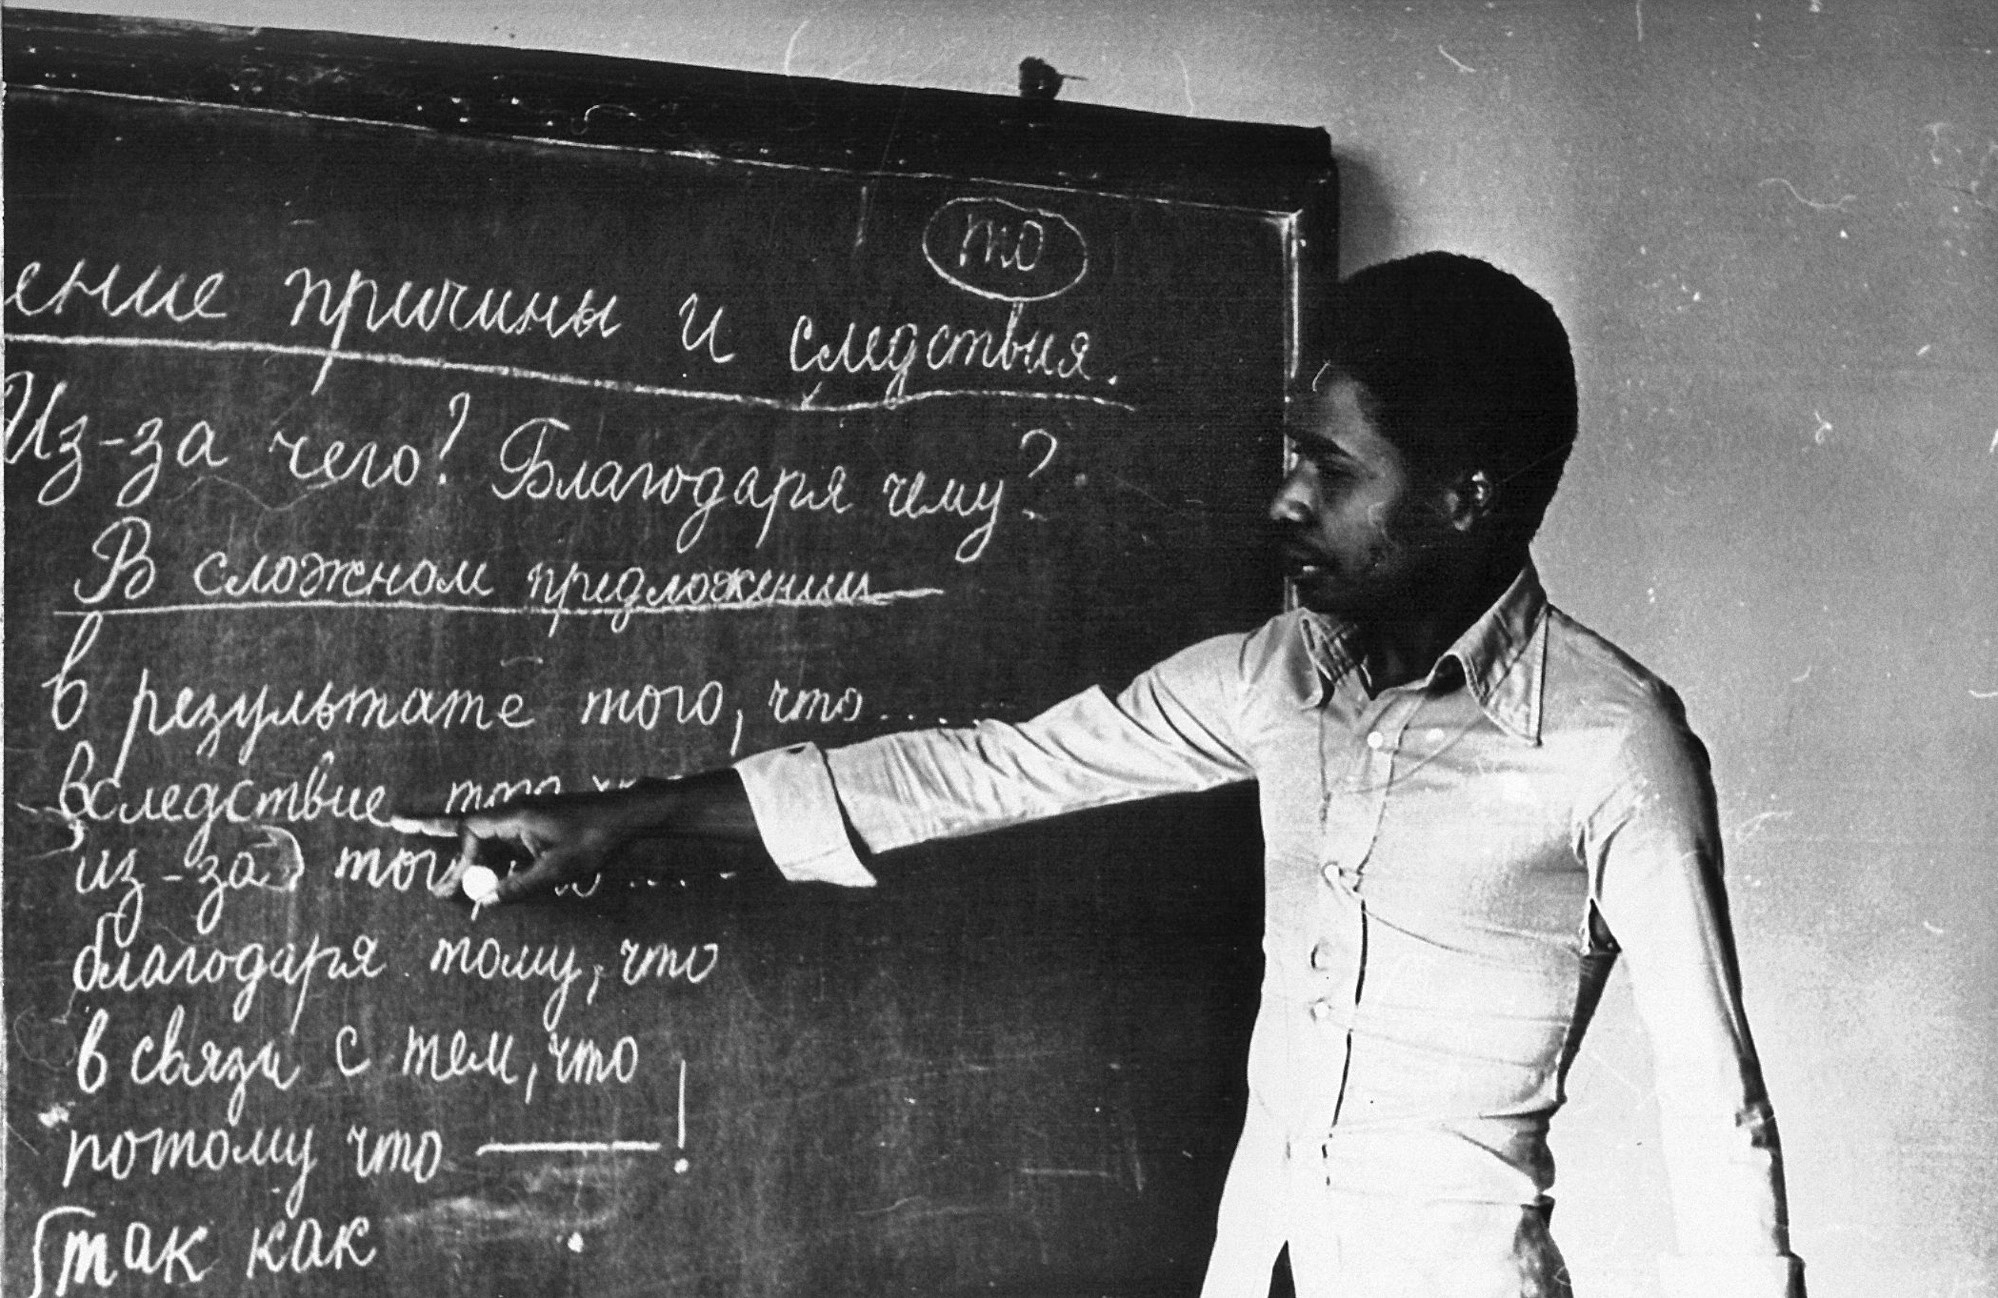 то
ение причины и следствия.
Из-за чего? Благодаря чему?
В сложном предложении
в результате того, что ......
вследствие того
из-за
благодаря тому, что
в связи с тем, что
потому что — !
так как